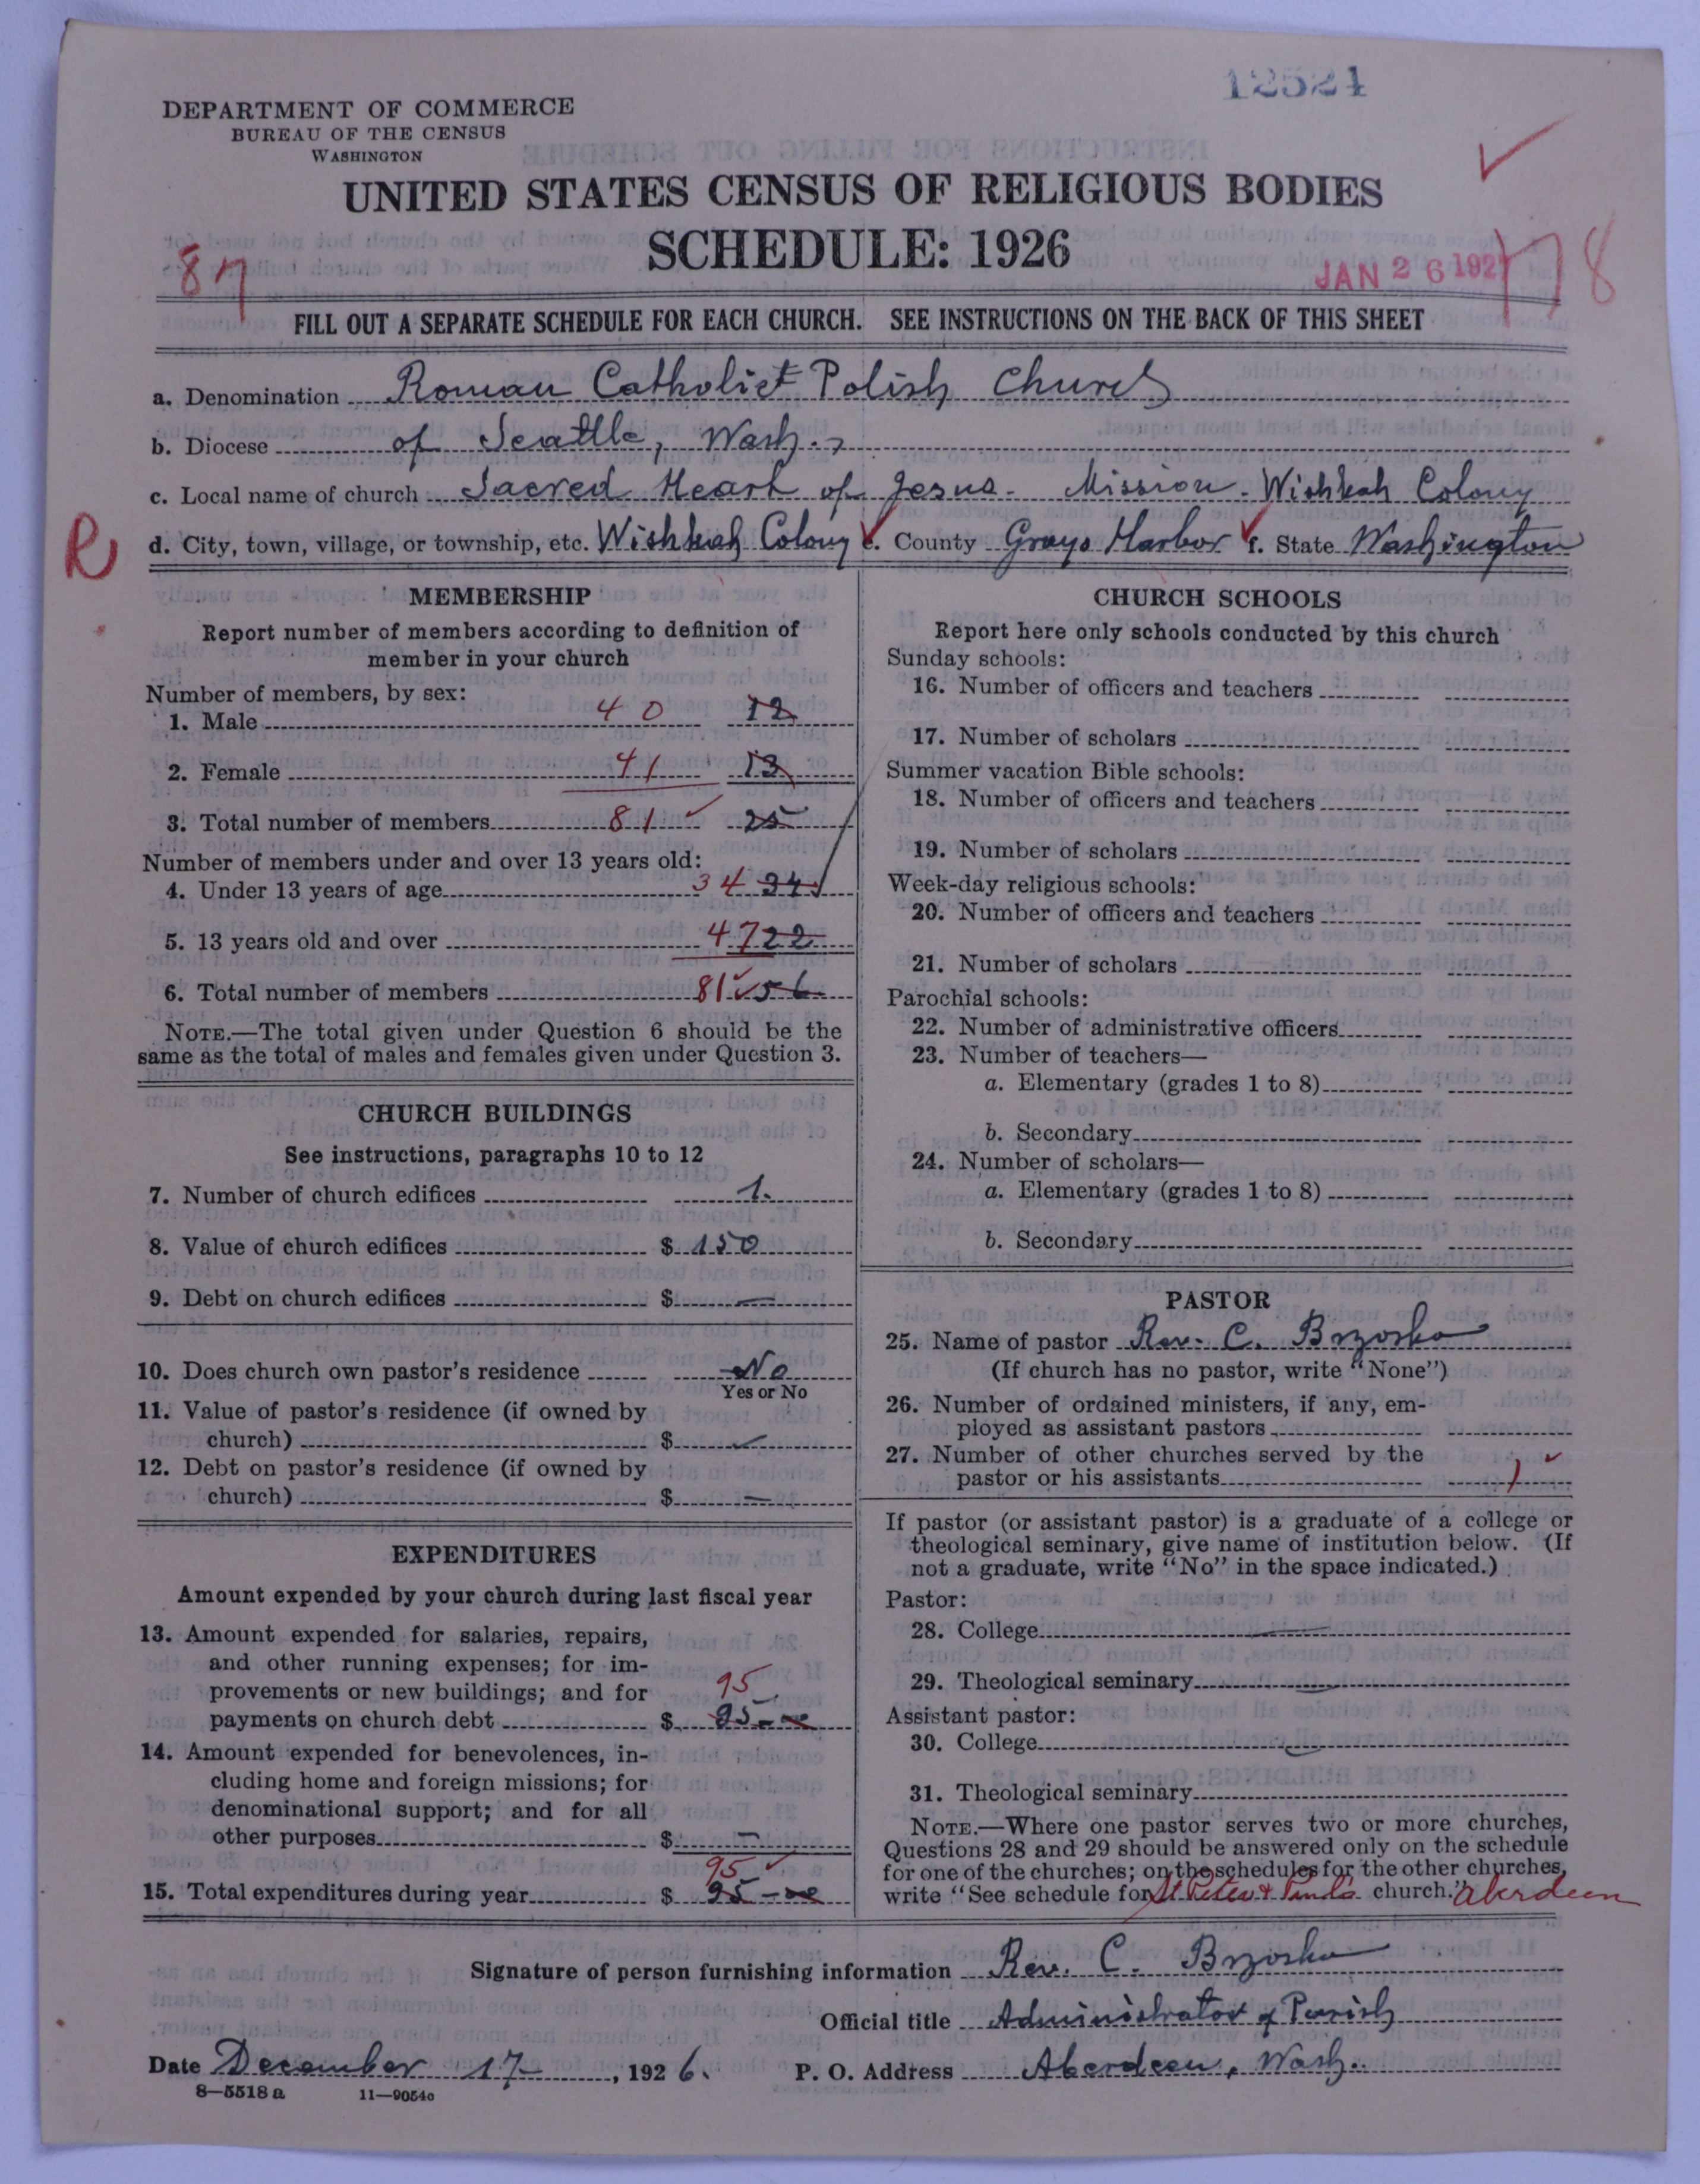 12524
DEPARTMENT OF COMMERCE
BUREAU OF THE CENSUS
WASHINGTON
UNITED STATES CENSUS OF RELIGIOUS BODIES
SCHEDULE: 1926
87
JAN 26 1927
78
FILL OUT A SEPARATE SCHEDULE FOR EACH CHURCH. SEE INSTRUCTIONS ON THE BACK OF THIS SHEET
a. Denomination Roman Catholic Polish Church
b. Diocese of Seattle, Wash.
c. Local name of church Sacred Heart of Jesus - Mission - Wishkah Colony
R
d. City, town, village, or township, etc. Wishkah Colony e. County Grays Harbor f. State Washington
MEMBERSHIP
Report number of members according to definition of
member in your church
Number of members, by sex:
1. Male 40 12
2. Female 41 13
3. Total number of members 81 25
Number of members under and over 13 years old:
4. Under 13 years of age 34 34
5. 13 years old and over 47 22
6. Total number of members 81 56
NOTE.—The total given under Question 6 should be the
same as the total of males and females given under Question 3.
CHURCH BUILDINGS
See instructions, paragraphs 10 to 12
7. Number of church edifices 1.
8. Value of church edifices $ 150
9. Debt on church edifices $ —
10. Does church own pastor's residence No
Yes or No
11. Value of pastor's residence (if owned by
church) $ —
12. Debt on pastor's residence (if owned by
church) $ —
EXPENDITURES
Amount expended by your church during last fiscal year
13. Amount expended for salaries, repairs,
and other running expenses; for im-
provements or new buildings; and for
95
payments on church debt $ 95 -
14. Amount expended for benevolences, in-
cluding home and foreign missions; for
denominational support; and for all
other purposes $ —
95
15. Total expenditures during year $ 95 -
CHURCH SCHOOLS
Report here only schools conducted by this church
Sunday schools:
16. Number of officers and teachers
17. Number of scholars
Summer vacation Bible schools:
18. Number of officers and teachers
19. Number of scholars
Week-day religious schools:
20. Number of officers and teachers
21. Number of scholars
Parochial schools:
22. Number of administrative officers
23. Number of teachers—
a. Elementary (grades 1 to 8)
b. Secondary
24. Number of scholars—
a. Elementary (grades 1 to 8)
b. Secondary
PASTOR
25. Name of pastor Rev. C. Brzoska
(If church has no pastor, write "None")
26. Number of ordained ministers, if any, em-
ployed as assistant pastors
27. Number of other churches served by the
pastor or his assistants 1
If pastor (or assistant pastor) is a graduate of a college or
theological seminary, give name of institution below. (If
not a graduate, write "No" in the space indicated.)
Pastor:
28. College —
29. Theological seminary —
Assistant pastor:
30. College —
31. Theological seminary
NOTE.—Where one pastor serves two or more churches,
Questions 28 and 29 should be answered only on the schedule
for one of the churches; on the schedules for the other churches,
write "See schedule for St Peter & Paul's church." Aberdeen
Signature of person furnishing information Rev. C. Brzoska
Official title Administrator of Parish
Date December 17, 1926. P. O. Address Aberdeen, Wash.
8—5518 a 11—9054c